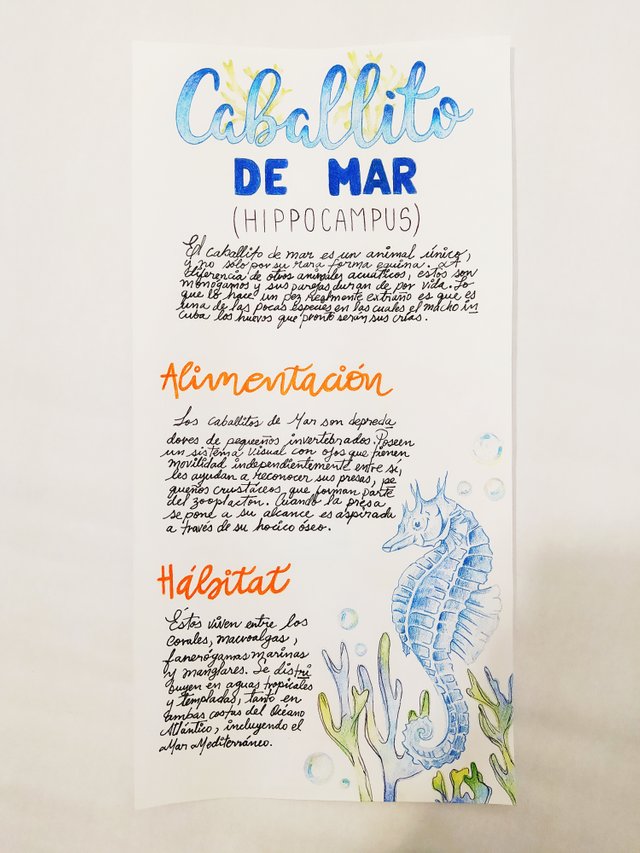 Caballito
DE MAR
(HIPPOCAMPUS)
El caballito de mar es un animal único,
y no sólo por su rara forma equina. A
diferencia de otros animales acuáticos, estos son
monógamos y sus parejas duran de por vida. Lo
que lo hace un pez realmente extraño es que es
una de las pocas especies en las cuales el macho in
cuba los huevos que pronto serán sus crías.
Alimentación
Los caballitos de Mar son depreda
dores de pequeños invertebrados. Poseen
un sistema visual con ojos que tienen
movilidad independientemente entre sí,
les ayudan a reconocer sus presas, pe
queños crustáceos que forman parte
del zooplacton. Cuando la presa
se pone a su alcance es aspirada
a través de su hocico óseo.
Hábitat
Éstos viven entre los
corales, macroalgas,
fanerógamas marinas
y manglares. Se distri
buyen en aguas tropicales
y templadas, tanto en
ambas costas del Océano
Atlántico, incluyendo el
Mar Mediterráneo.